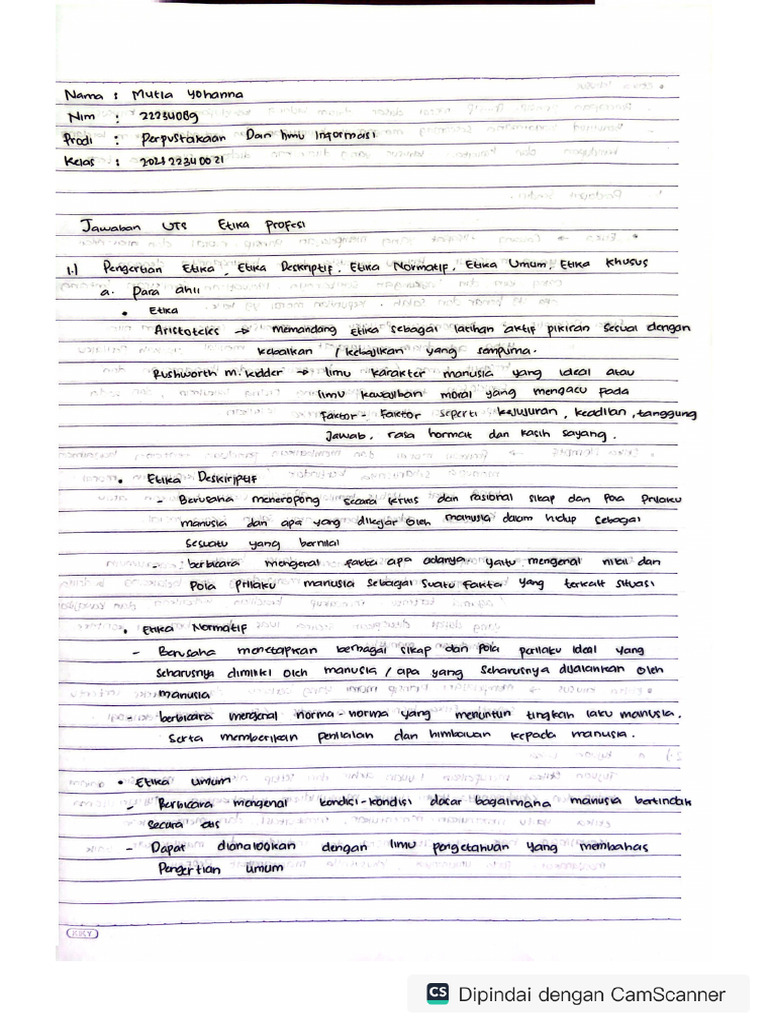 Nama : Mutia Yohanna
Nim : 22234089
Prodi : Perpustakaan Dan Ilmu Informasi
Kelas : 202122340021
Jawaban UTS Etika Profesi
1.) Pengertian Etika, Etika Deskriptif, Etika Normatif, Etika Umum, Etika Khusus
a. Para ahli
• Etika
Aristoteles → memandang Etika sebagai latihan aktif pikiran sesuai dengan
kebaikan / kebajikan yang sempurna.
Rushworth M. Kidder → ilmu karakter manusia yang ideal atau
ilmu kewajiban moral yang mengacu pada
Faktor - Faktor seperti kejujuran, keadilan, tanggung
Jawab, rasa hormat dan kasih sayang.
• Etika Deskiriptif
- Berusaha meneropong secara kritis dan rasional sikap dan Pola Prilaku
manusia dan apa yang dikejar oleh manusia dalam hidup sebagai
sesuatu yang bernilai
- berbicara mengenai fakta apa adanya yaitu mengenai nilai dan
Pola prilaku manusia sebagai suatu fakta yang terkait situasi
• Etika Normatif
- Berusaha menetapkan berbagai sikap dan pola perilaku ideal yang
seharusnya dimiliki oleh manusia / apa yang seharusnya dijalankan oleh
manusia
- berbicara mengenai norma-norma yang menuntun tingkah laku manusia.
Serta memberikan penilaian dan himbauan kepada manusia.
• Etika umum
- Berbicara mengenai kondisi-kondisi dasar bagaimana manusia bertindak
secara etis
- Dapat dianalogikan dengan ilmu pengetahuan yang membahas
Pengertian umum
KKY
CS Dipindai dengan CamScanner